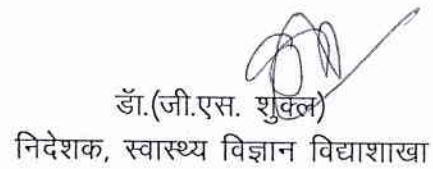 डॉ.(जी.एस. शुक्ल)
निदेशक, स्वास्थ्य विज्ञान विद्याशाखा